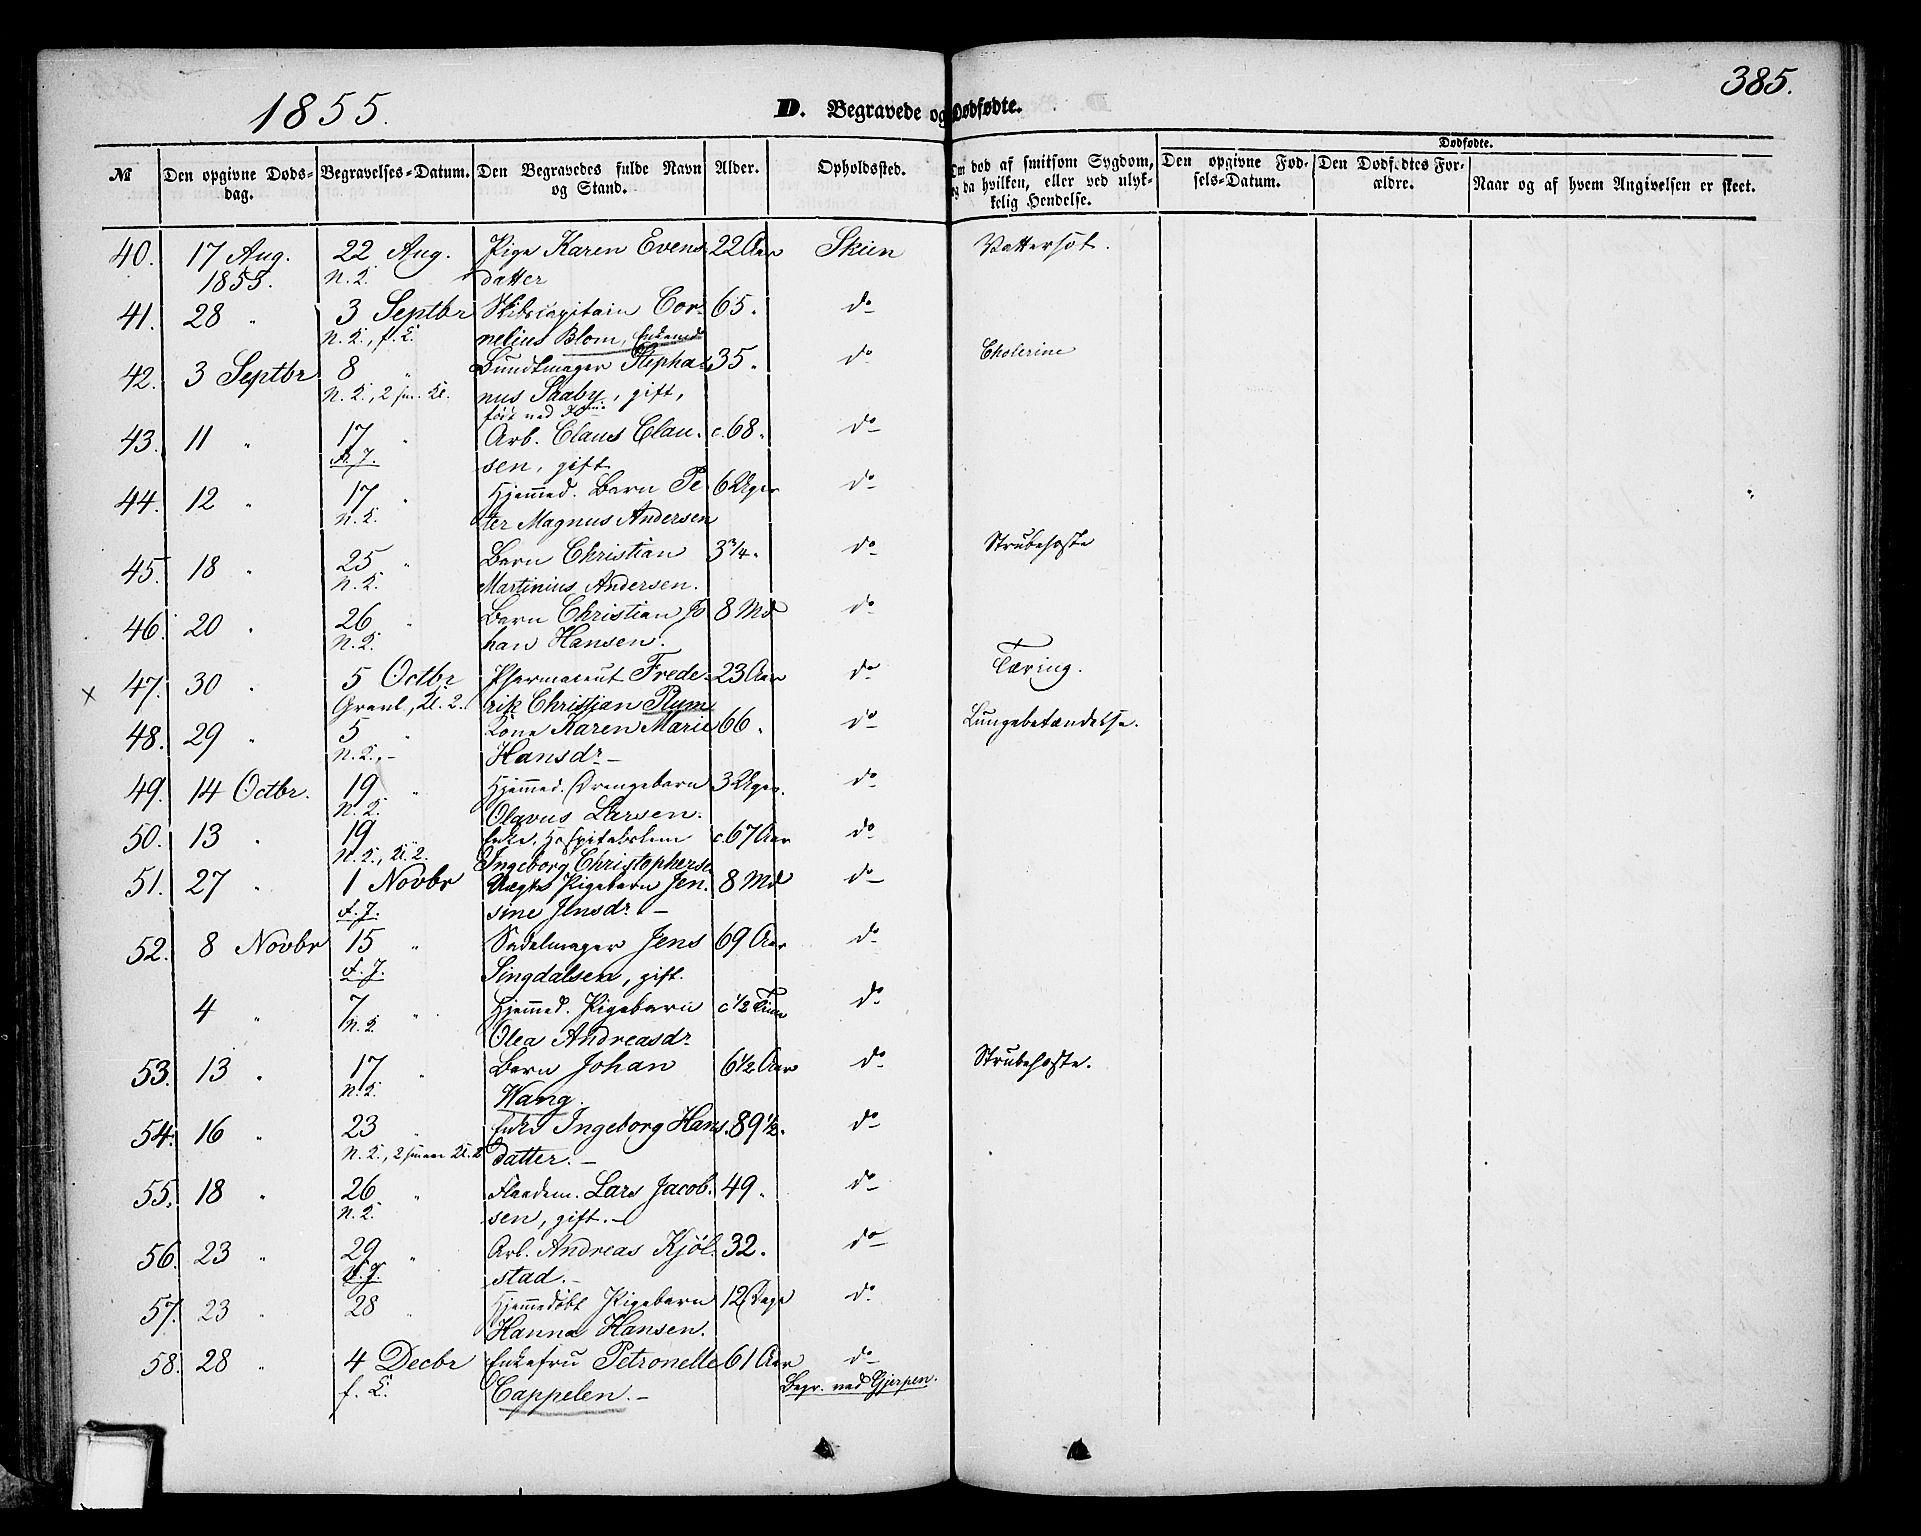 1855.
D. Begravede og Dødfødte.
385.
№
Den opgivne Døds-dag.
Begravelses-Datum.
Den Begravedes fulde Navn og Stand.
Alder.
Opholdssted.
Om død af smitsom Sygdom, og da hvilken, eller ved ulykkelig Hendelse.
Dødfødte.
Den opgivne Fødsels-Datum.
Den Dødfødtes Forældre.
Naar og af hvem Angivelsen er skeet.
40. 17 Aug. 22 Aug. Pige Karen Evens 22 Aar Skien Vattersot.
1855. N. K. datter
41. 28 " 3 Septbr Skibscapitain Cor- 65. do
N. K., f. K. nelius Blom, Enkemd
42. 3 Septbr 8 " Bundtmager Stepha- 35. do Cholerine
N. K., 2 Kl. nus Skaby, gift,
43. 11 " 17 " Arb. Claus Clau- c. 68. do
F. J. sen, gift
44. 12 " 17 " Hjemmed. Barn Pe 6 Uger do
N. K. ter Magnus Andersen
45. 18 " 25 " Barn Christian 3 3/4. do Strubehoste
N. K. Martinius Andersen.
46. 20 " 26 " Barn Christian Jo 8 Md do
N. K. han Hansen.
x 47. 30 " 5 Octbr Pharmaceut Frede- 23 Aar do Tæring.
Gravl., Kl. 2. rik Christian Plum
48. 29 " 5 " Kone Karen Marie 66. do Lungebetændelse.
N. K. - Hansdr -
49. 14 Octbr. 19 " Hjemmed. Drengebarn 3 Uger. do
N. K. Olavus Larsen.
50. 13 " 19 Enke, Hospitalslem c. 67 Aar do
N. K., Kl. 2. Ingeborg Christopherse
51. 27 " 1 Novbr Uægte Pigebarn Jen- 8 Md do
F. J. sine Jensdr. -
52. 8 Novbr 15 " Sadelmager Jens 69 Aar do
F. J. Singdalsen, gift.
4 " 7 " Hjemmed. Pigebarn c 1/2 Time do
N. K. Olea Andreasdr
53. 13 " 17 " Barn Johan 6 1/2 Aar do Strubehoste.
N. K. Wang.
54. 16 " 23 " Enke Ingeborg Hans. 89 1/2. do
N. K., 2 Kl. 2 datter. -
55. 18 " 26 " Flaadem. Lars Jacob. 49. do
N. K. sen, gift. -
56. 23 " 29 " Arb. Andreas Kjöl- 32. do
F. J. stad. -
57. 23 " 28 " Hjemmedøbt Pigebarn 12 Dage do
Hanna Hansen.
58. 28 " 4 Decbr Enkefru Petronelle 61 Aar do
f. K. Cappelen. - Begr. ved Gjerpen.